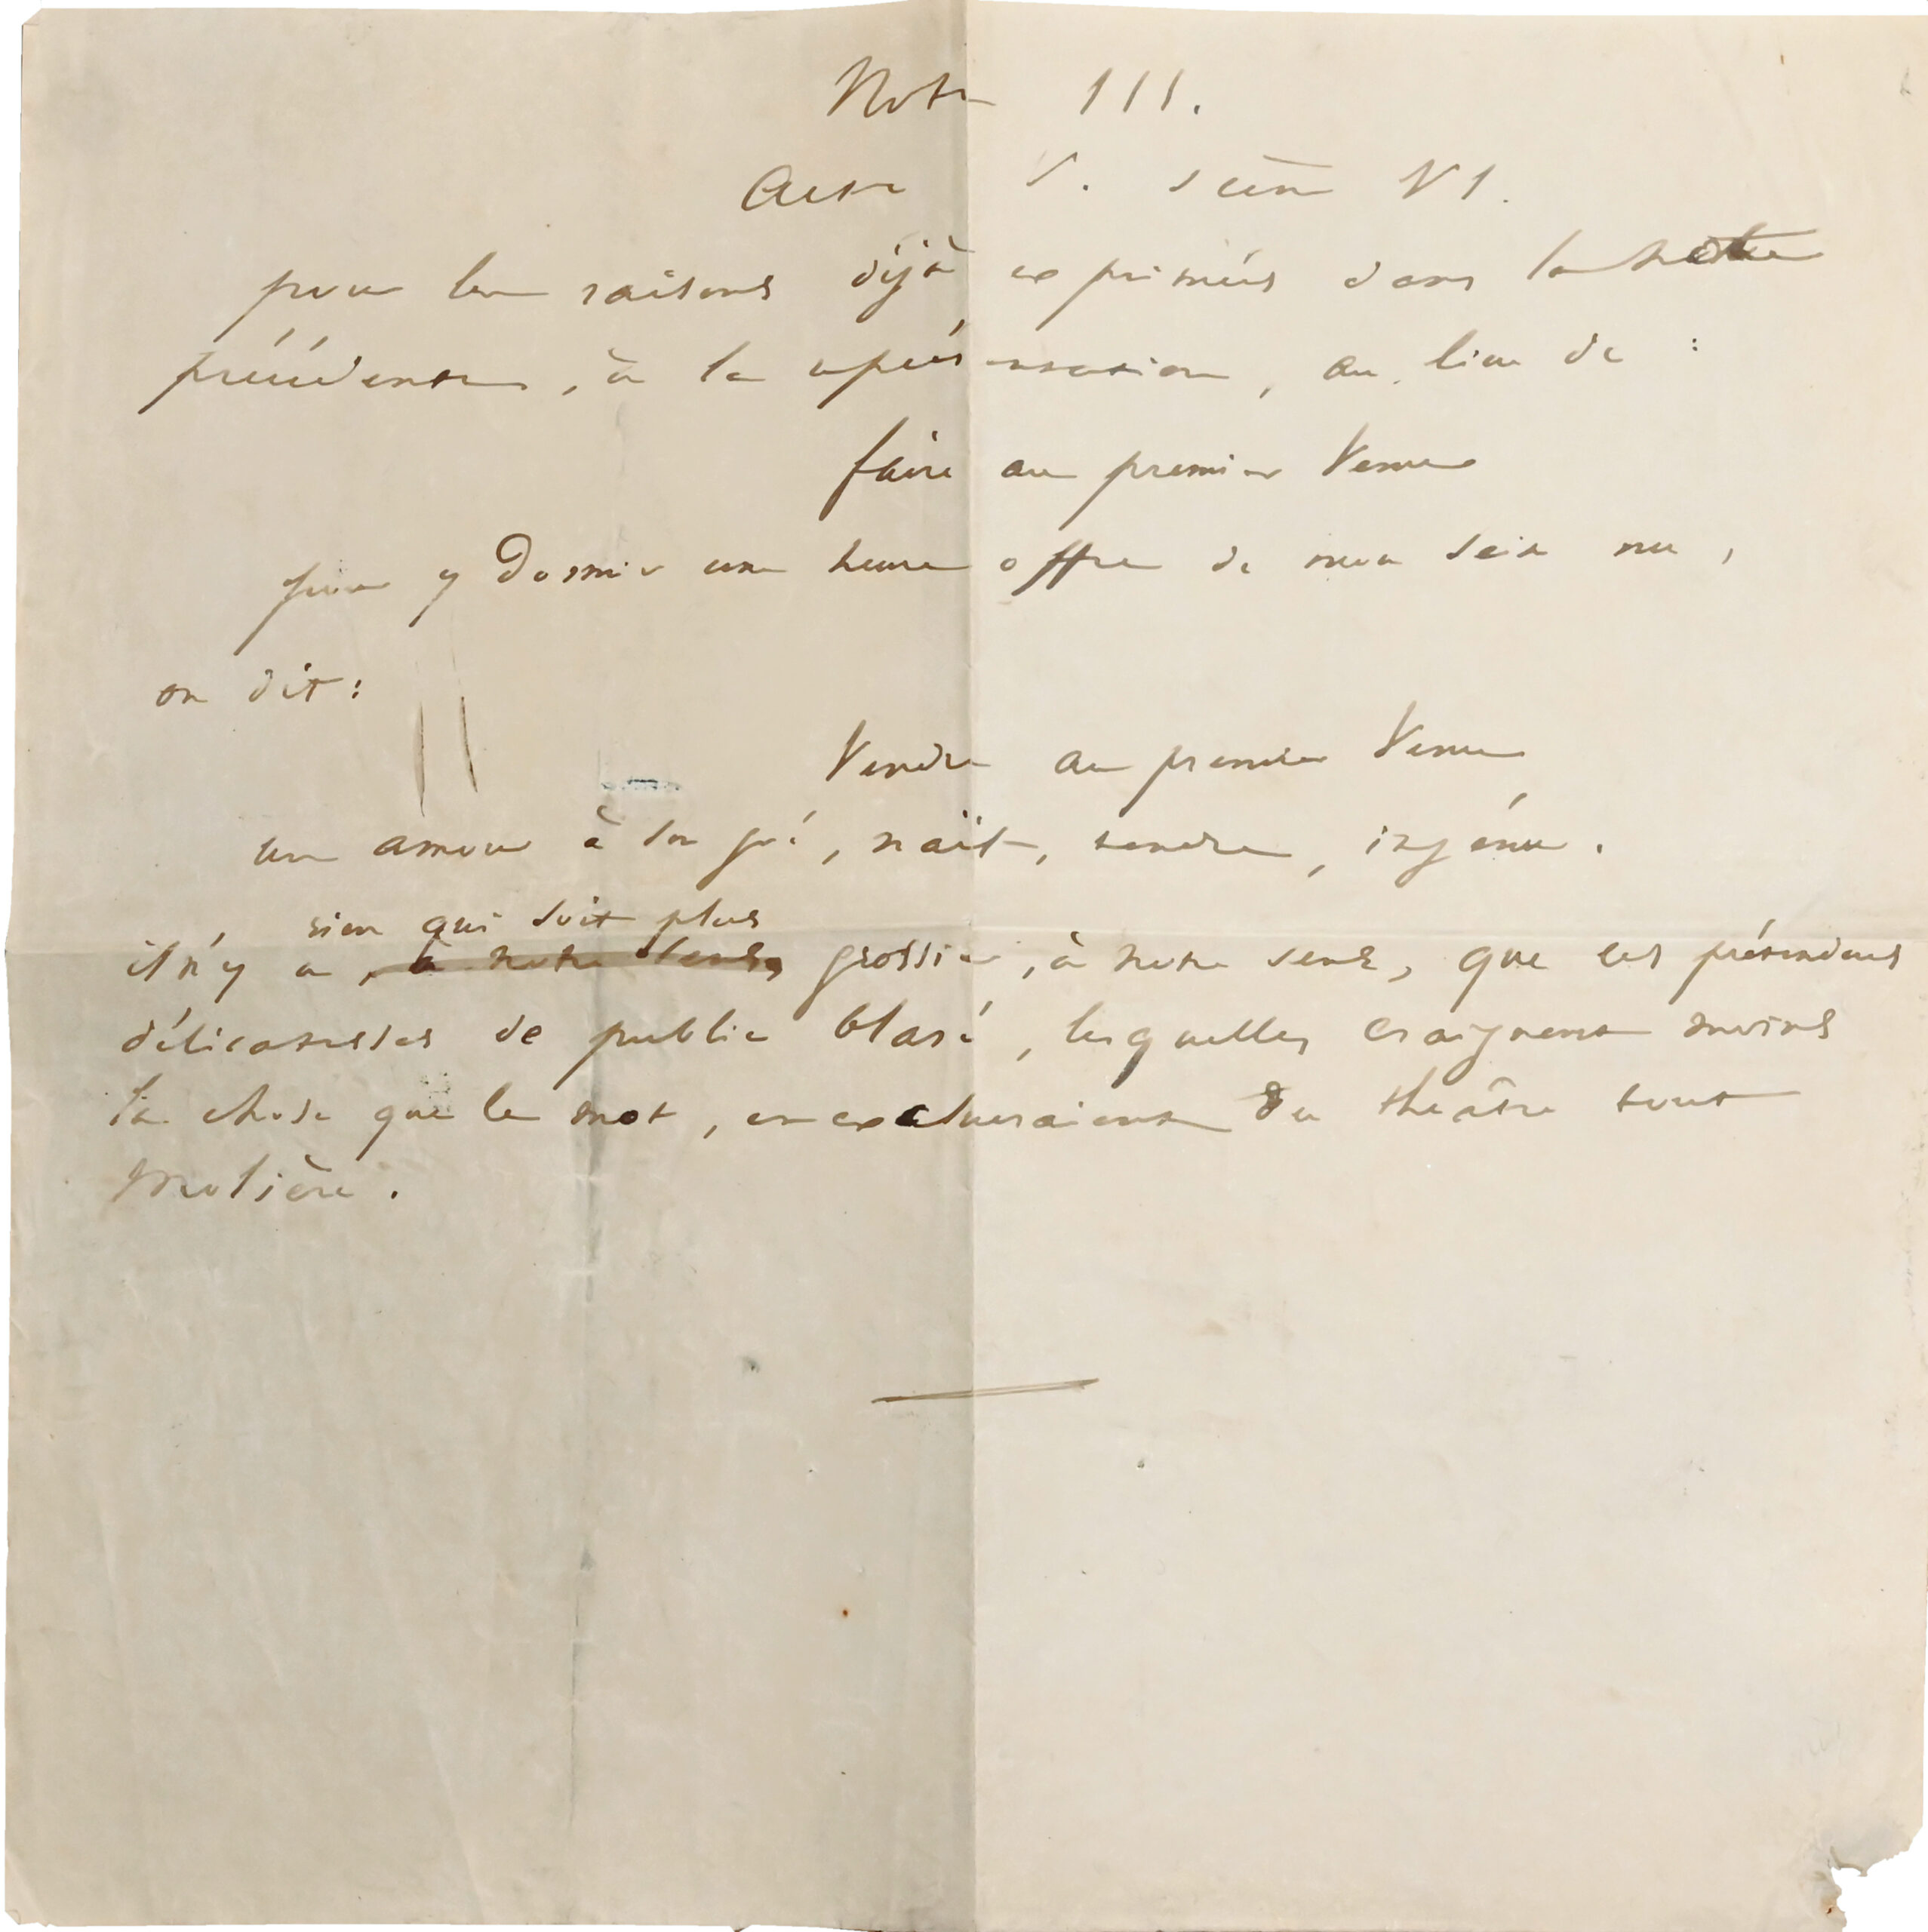 Note III.
Acte V. Scène VI.
pour les raisons déjà exprimées dans la note
précédente, à la représentation, au lieu de :
faire au premier venu
pour y dormir une heure offre de mon sein nu,
on dit :
Vendre au premier venu
un amour à son gré, naïf, tendre, ingénu.
rien qui soit plus
il n'y a, à notre sens, grossier, à notre sens, que ces prétendues
délicatesses de public blasé, lesquelles craignent moins
la chose que le mot, et excluraient du théâtre tout
Molière.